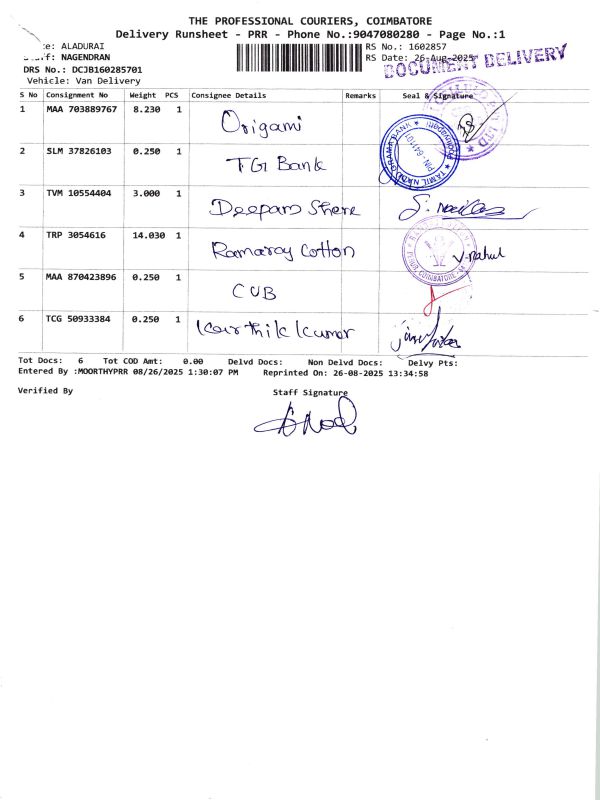 THE PROFESSIONAL COURIERS, COIMBATORE
Delivery Runsheet - PRR - Phone No.:9047080280 - Page No.:1
ALADURAI RS No.: 1602857
NAGENDRAN RS Date: 26-Aug-2025
DOCUMENT DELIVERY
DRS No.: DCJB160285701
Vehicle: Van Delivery
S No Consignment No Weight PCS Consignee Details Remarks Seal & Signature
1 MAA 703889767 8.230 1 Origami
TAMIL NADU GRAMA BANK
2 SLM 37826103 0.250 1 TGI Bank
3 TVM 10554404 3.000 1 Deepam Shere
4 TRP 3054616 14.030 1 Ramaray Cotton
V. Rahul
5 MAA 870423896 0.250 1 CUB
6 TCG 50933384 0.250 1 Karthik Kumar
Tot Docs: 6 Tot COD Amt: 0.00 Delvd Docs: Non Delvd Docs: Delvy Pts:
Entered By :MOORTHYPRR 08/26/2025 1:30:07 PM Reprinted On: 26-08-2025 13:34:58
Verified By Staff Signature